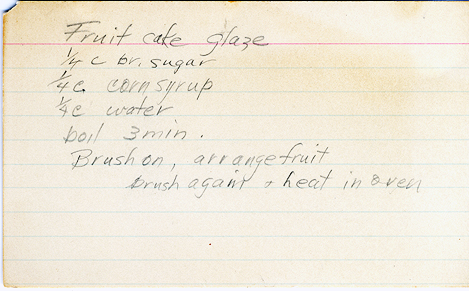 Fruit cake glaze
1/4 c br. sugar
1/4 c. corn syrup
1/4 c water
boil 3 min.
Brush on, arrange fruit
brush again + heat in oven